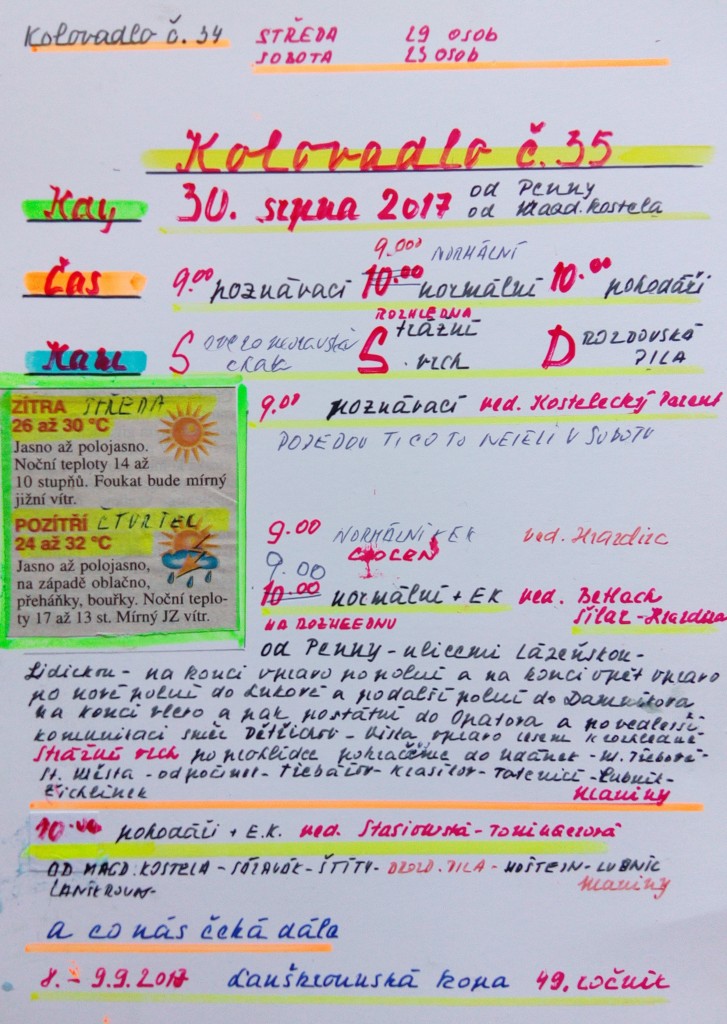 Kolovadlo č. 34 STŘEDA 19 OSOB
SOBOTA 23 OSOB
Kolovadlo č. 35
Kdy 30. srpna 2017 od Penny
od Maad. Kostela
9.00 NORMÁLNÍ
Čas 9.00 poznávací 10.00 normální 10.00 pohodáři
ROZHLEDNA
Kam Severomoravská chak Strážní vrch DROZDOVSKÁ PILA
ZÍTRA STŘEDA
26 až 30 °C
Jasno až polojasno.
Noční teploty 14 až
10 stupňů. Foukat bude mírný
jižní vítr.
POZÍTŘÍ ČTVRTEK
24 až 32 °C
Jasno až polojasno,
na západě oblačno,
přeháňky, bouřky. Noční teplo-
ty 17 až 13 st. Mírný JZ vítr.
9.00 poznávací ved. Kostelecký Parent
POJEDOU TI CO TO NEJELI V SOBOTU
9.00 NORMÁLNÍ EK ved. Hrazdira
CHOCEŇ
9.00
10.00 normální + EK ved. Betlach
NA ROZHLEDNU Šilar - Hrazdira
od Penny - ulicemi Lázeňskou -
Lidickou - na konci vpravo po polní a na konci opět vpravo
po nové polní do Lukové a po další polní do Damníkova
na konci vlevo a pak po státní do Opatova a po vedlejší
komunikaci směr Dětřichov - vpravo lesem k rozhledně
Strážní vrch po prohlídce pokračujeme do Udánek - M. Třebové -
St. Města - odpočinek - Třebařov - Krasíkov - Tatenice - Lubník -
Žichlínek Hlaviny
10.00 pohodáři + E.K. ved. Stasiowská - Tomingerová
OD MAGD. KOSTELA - SÁZAVA - ŠTÍTY - DROZD. PILA - HOŠTEJN - LUBNÍK
LANŠKROUN Hlaviny
a co nás čeká dále
8. - 9.9. 2017 Lanškrounská kopa 49. ročník